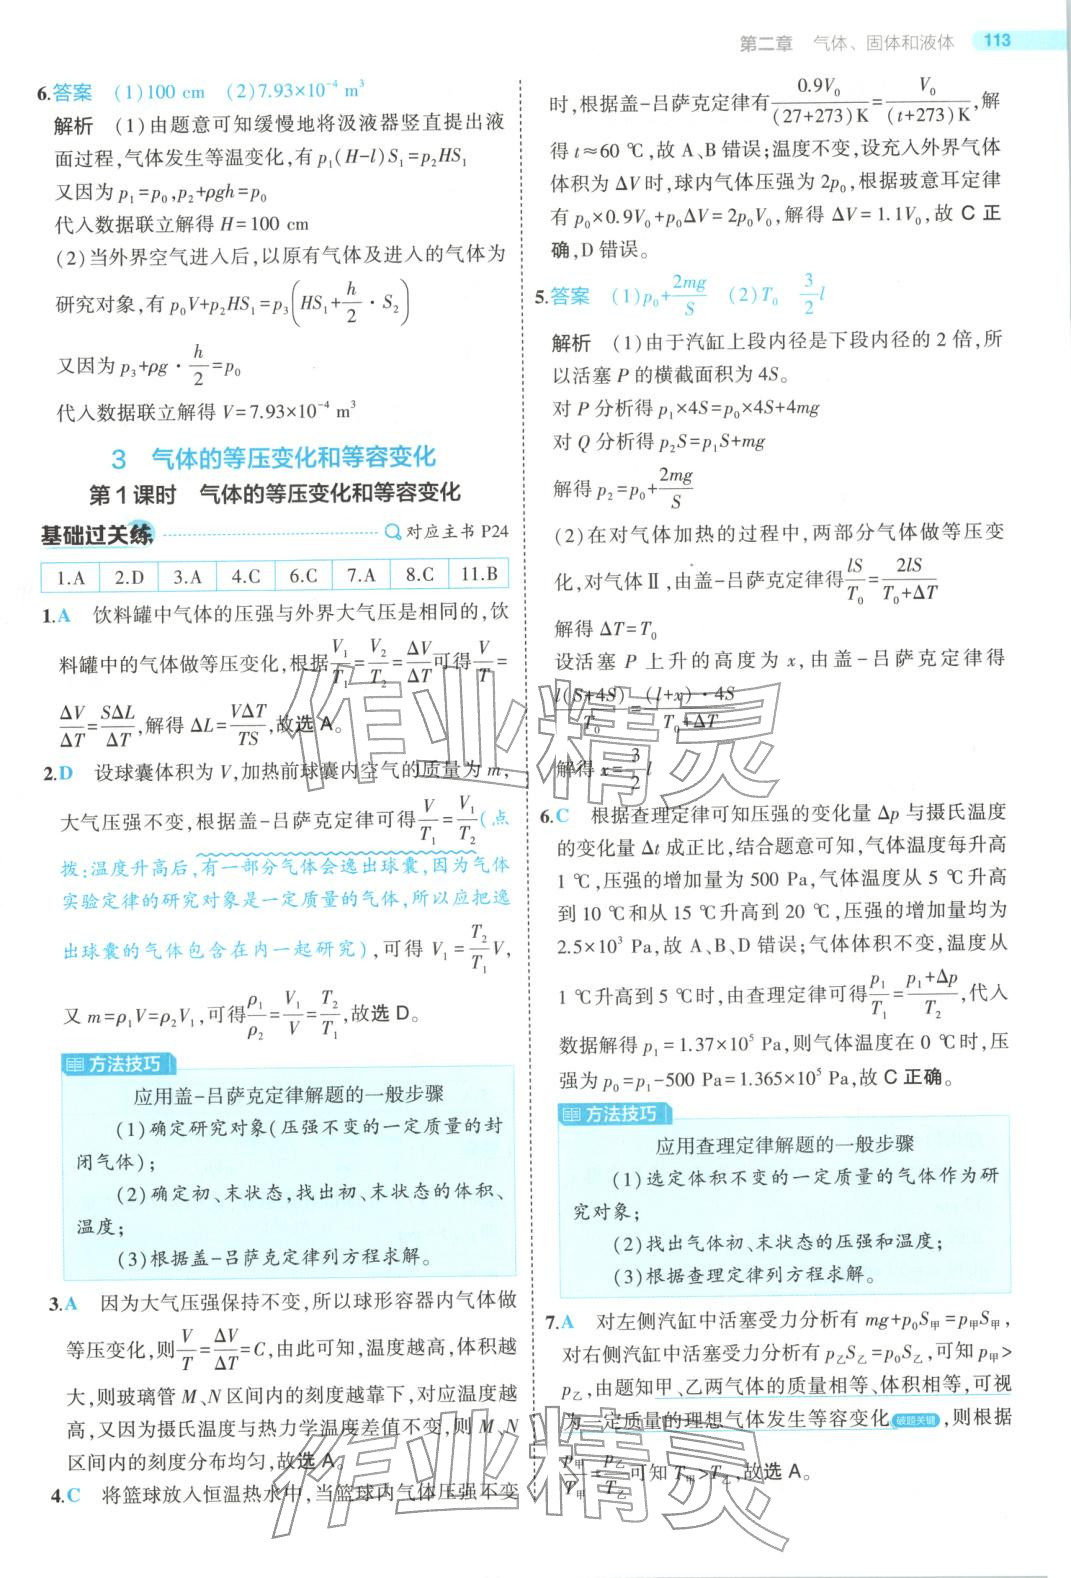 第二章 气体、固体和液体 113
6.答案 (1)100 cm (2)7.93×10⁻⁴ m³
解析 (1)由题意可知缓慢地将汲液器竖直提出液
面过程,气体发生等温变化,有p₁(H-l)S₁=p₂HS₁
又因为p₁=p₀,p₂+ρgh=p₀
代入数据联立解得H=100 cm
(2)当外界空气进入后,以原有气体及进入的气体为
研究对象,有p₀V+p₂HS₁=p₃(HS₁+h/2·S₂)
又因为p₃+ρg·h/2=p₀
代入数据联立解得V=7.93×10⁻⁴ m³
3 气体的等压变化和等容变化
第1课时 气体的等压变化和等容变化
基础过关练 对应主书P24
1.A 2.D 3.A 4.C 6.C 7.A 8.C 11.B
1.A 饮料罐中气体的压强与外界大气压是相同的,饮
料罐中的气体做等压变化,根据V₁/T₁=V₂/T₂=ΔV/ΔT可得V/T=
ΔV/ΔT=SΔL/ΔT,解得ΔL=VΔT/TS,故选A。
2.D 设球囊体积为V,加热前球囊内空气的质量为m,
大气压强不变,根据盖-吕萨克定律可得V/T₁=V₁/T₂(点
拨:温度升高后,有一部分气体会逸出球囊,因为气体
实验定律的研究对象是一定质量的气体,所以应把逸
出球囊的气体包含在内一起研究),可得V₁=T₂/T₁V,
又m=ρ₁V=ρ₂V₁,可得ρ₁/ρ₂=V₁/V=T₂/T₁,故选D。
方法技巧
应用盖-吕萨克定律解题的一般步骤
(1)确定研究对象(压强不变的一定质量的封
闭气体);
(2)确定初、末状态,找出初、末状态的体积、
温度;
(3)根据盖-吕萨克定律列方程求解。
3.A 因为大气压强保持不变,所以球形容器内气体做
等压变化,则V/T=ΔV/ΔT=C,由此可知,温度越高,体积越
大,则玻璃管M、N区间内的刻度越靠下,对应温度越
高,又因为摄氏温度与热力学温度差值不变,则M、N
区间内的刻度分布均匀,故选A。
4.C 将篮球放入恒温热水中,当篮球内气体压强不变
时,根据盖-吕萨克定律有0.9V₀/(27+273)K=V₀/(t+273)K,解
得t≈60 ℃,故A、B错误;温度不变,设充入外界气体
体积为ΔV时,球内气体压强为2p₀,根据玻意耳定律
有p₀×0.9V₀+p₀ΔV=2p₀V₀,解得ΔV=1.1V₀,故C正
确,D错误。
5.答案 (1)p₀+2mg/S (2)T₀ 3/2l
解析 (1)由于汽缸上段内径是下段内径的2倍,所
以活塞P的横截面积为4S。
对P分析得p₁×4S=p₀×4S+4mg
对Q分析得p₂S=p₁S+mg
解得p₂=p₀+2mg/S
(2)在对气体加热的过程中,两部分气体做等压变
化,对气体Ⅱ,由盖-吕萨克定律得lS/T₀=2lS/(T₀+ΔT)
解得ΔT=T₀
设活塞P上升的高度为x,由盖-吕萨克定律得
l(S+4S)/T₀=(l+x)·4S/(T₀+ΔT)
解得x=3/2l
6.C 根据查理定律可知压强的变化量Δp与摄氏温度
的变化量Δt成正比,结合题意可知,气体温度每升高
1 ℃,压强的增加量为500 Pa,气体温度从5 ℃升高
到10 ℃和从15 ℃升高到20 ℃,压强的增加量均为
2.5×10³ Pa,故A、B、D错误;气体体积不变,温度从
1 ℃升高到5 ℃时,由查理定律可得p₁/T₁=(p₁+Δp)/T₂,代入
数据解得p₁=1.37×10⁵ Pa,则气体温度在0 ℃时,压
强为p₀=p₁-500 Pa=1.365×10⁵ Pa,故C正确。
方法技巧
应用查理定律解题的一般步骤
(1)选定体积不变的一定质量的气体作为研
究对象;
(2)找出气体初、末状态的压强和温度;
(3)根据查理定律列方程求解。
7.A 对左侧汽缸中活塞受力分析有mg+p₀S甲=p甲S甲,
对右侧汽缸中活塞受力分析有p乙S乙=p₀S乙,可知p甲>
p乙,由题知甲、乙两气体的质量相等、体积相等,可视
为一定质量的理想气体发生等容变化 破题关键,则根据
p甲/T甲=p乙/T乙可知T甲>T乙,故选A。
作业精灵
作业精灵